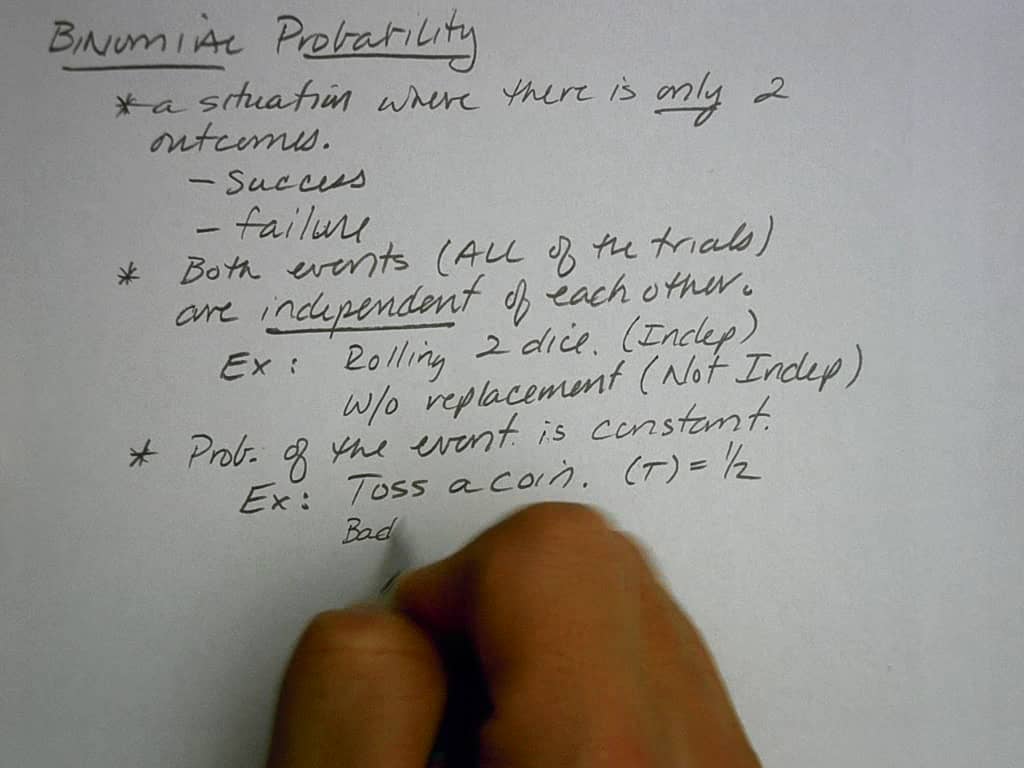 Binomial Probability
* a situation where there is only 2
outcomes.
- Success
- failure
* Both events (ALL of the trials)
are independent of each other.
Ex: Rolling 2 dice. (Indep)
w/o replacement (Not Indep)
* Prob. of the event is constant.
Ex: Toss a coin. (T) = 1/2
Bad